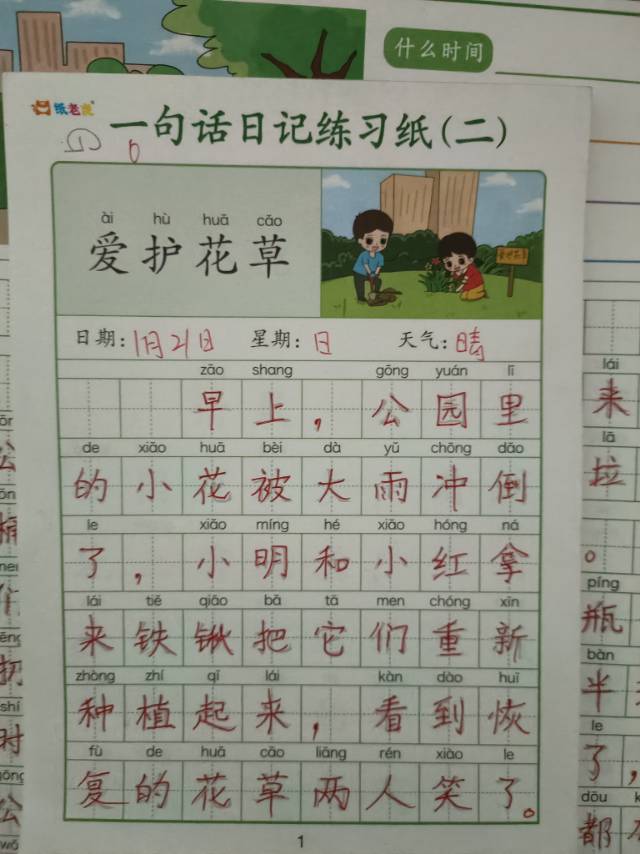 什么时间
纸老虎
一句话日记练习纸(二)
ài hù huā cǎo
爱护花草
爱护花草
日期:1月21日 星期:日 天气:晴
zǎo shang gōng yuán lǐ
早上,公园里
de xiǎo huā bèi dà yǔ chōng dǎo
的小花被大雨冲倒
le xiǎo míng hé xiǎo hóng ná
了,小明和小红拿
lái tiě qiāo bǎ tā men chóng xīn
来铁锹把它们重新
zhòng zhí qǐ lái kàn dào huī
种植起来,看到恢
fù de huā cǎo liǎng rén xiào le
复的花草两人笑了。
1
lái
来
lā
拉
。
píng
瓶
bàn
半
le
了,
dōu
都
公
时
公